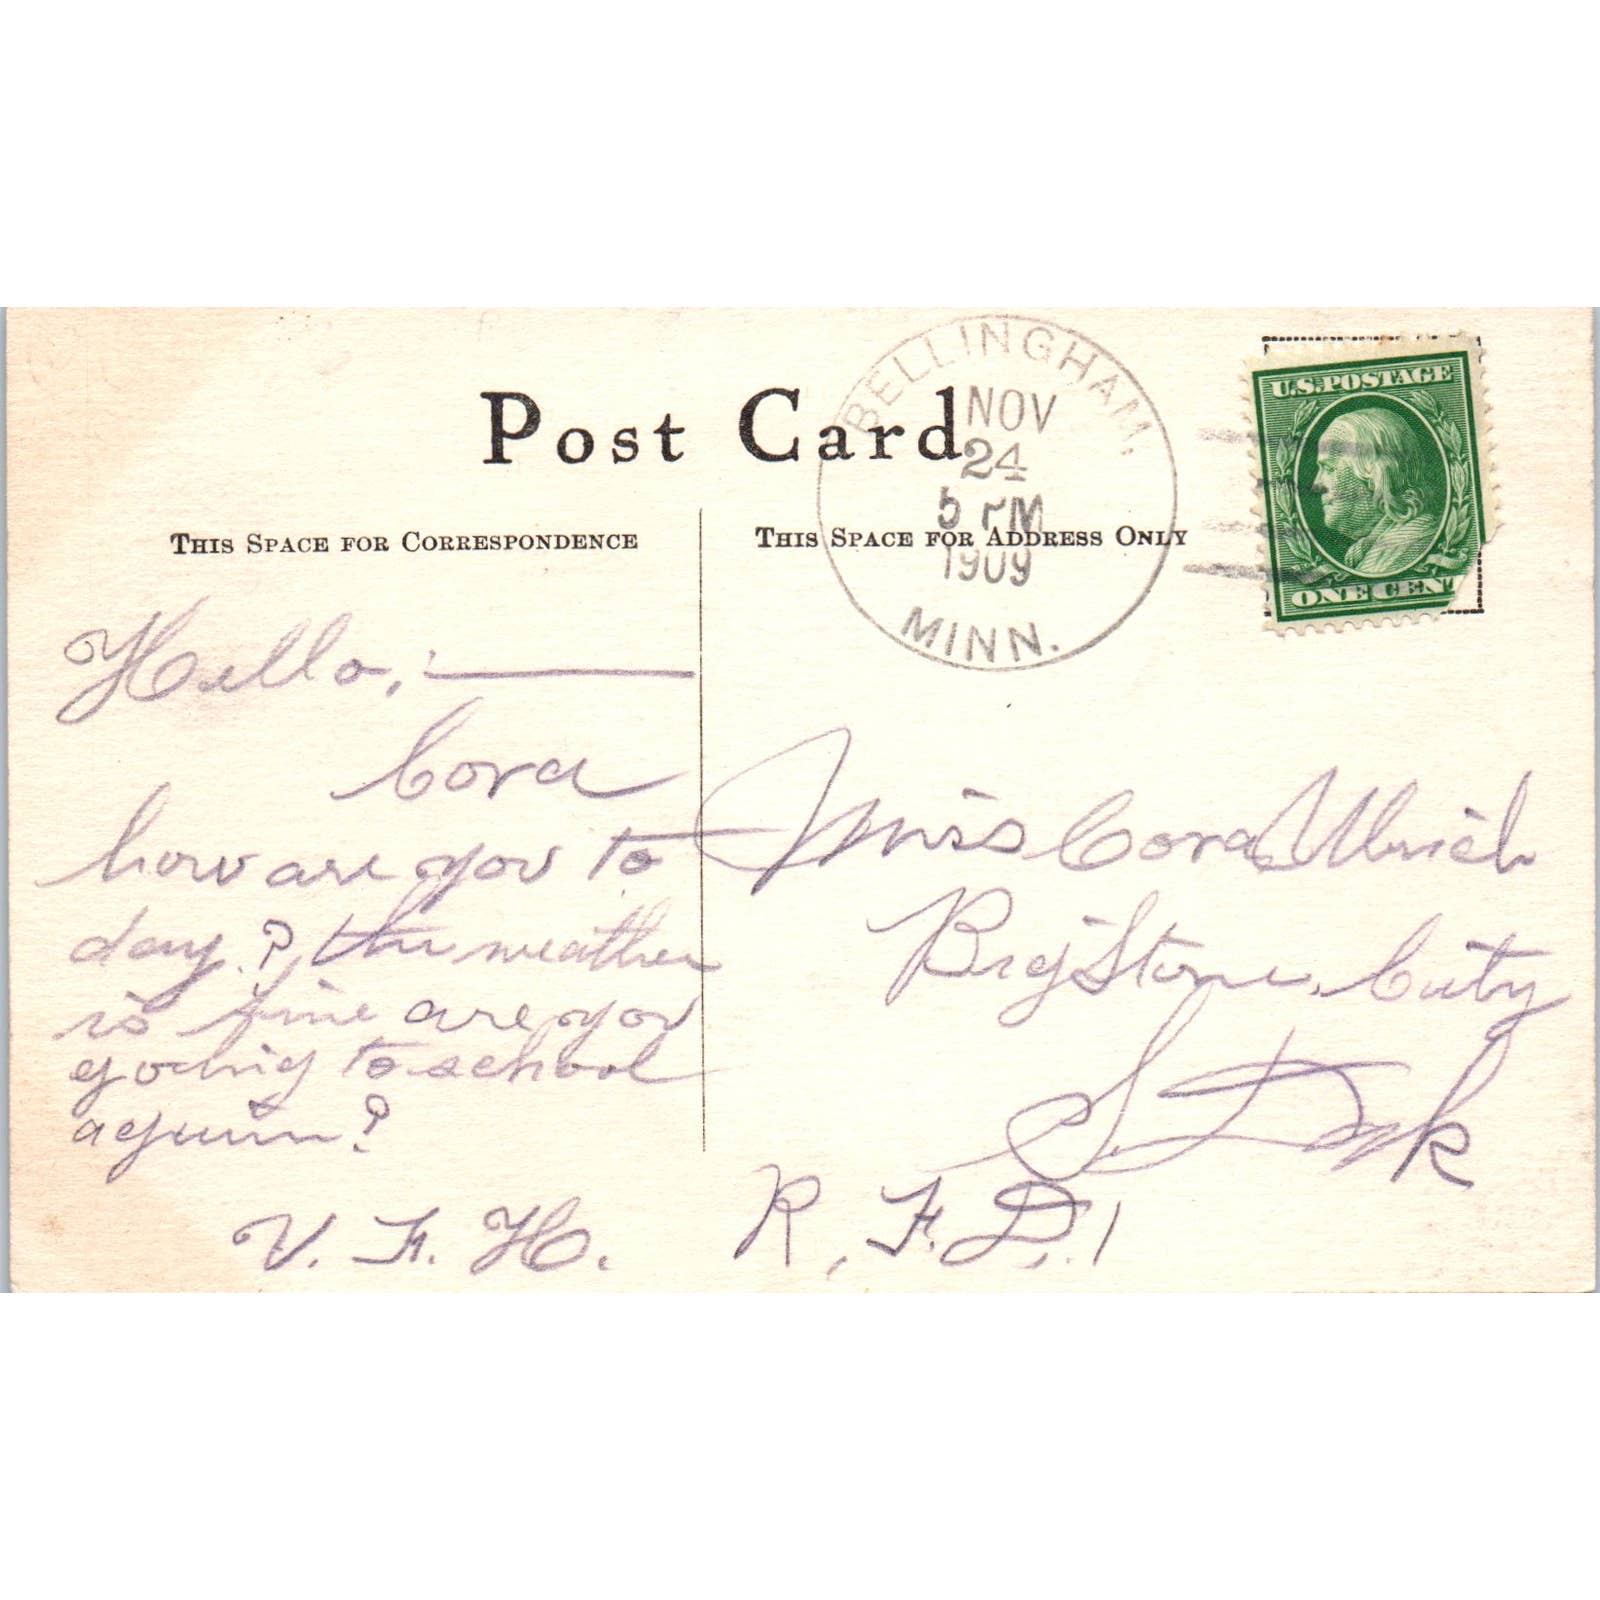 BELLINGHAM,
NOV
24
5 PM
1909
MINN.
U.S. POSTAGE
ONE CENT
Post Card
THIS SPACE FOR CORRESPONDENCE
THIS SPACE FOR ADDRESS ONLY
Hello,
Cora
how are you to
day? the weather
is fine are you
going to school
again?
V. F. H.
Miss Cora Ulrich
Big Stone, City
S Dak
R. F. D. 1